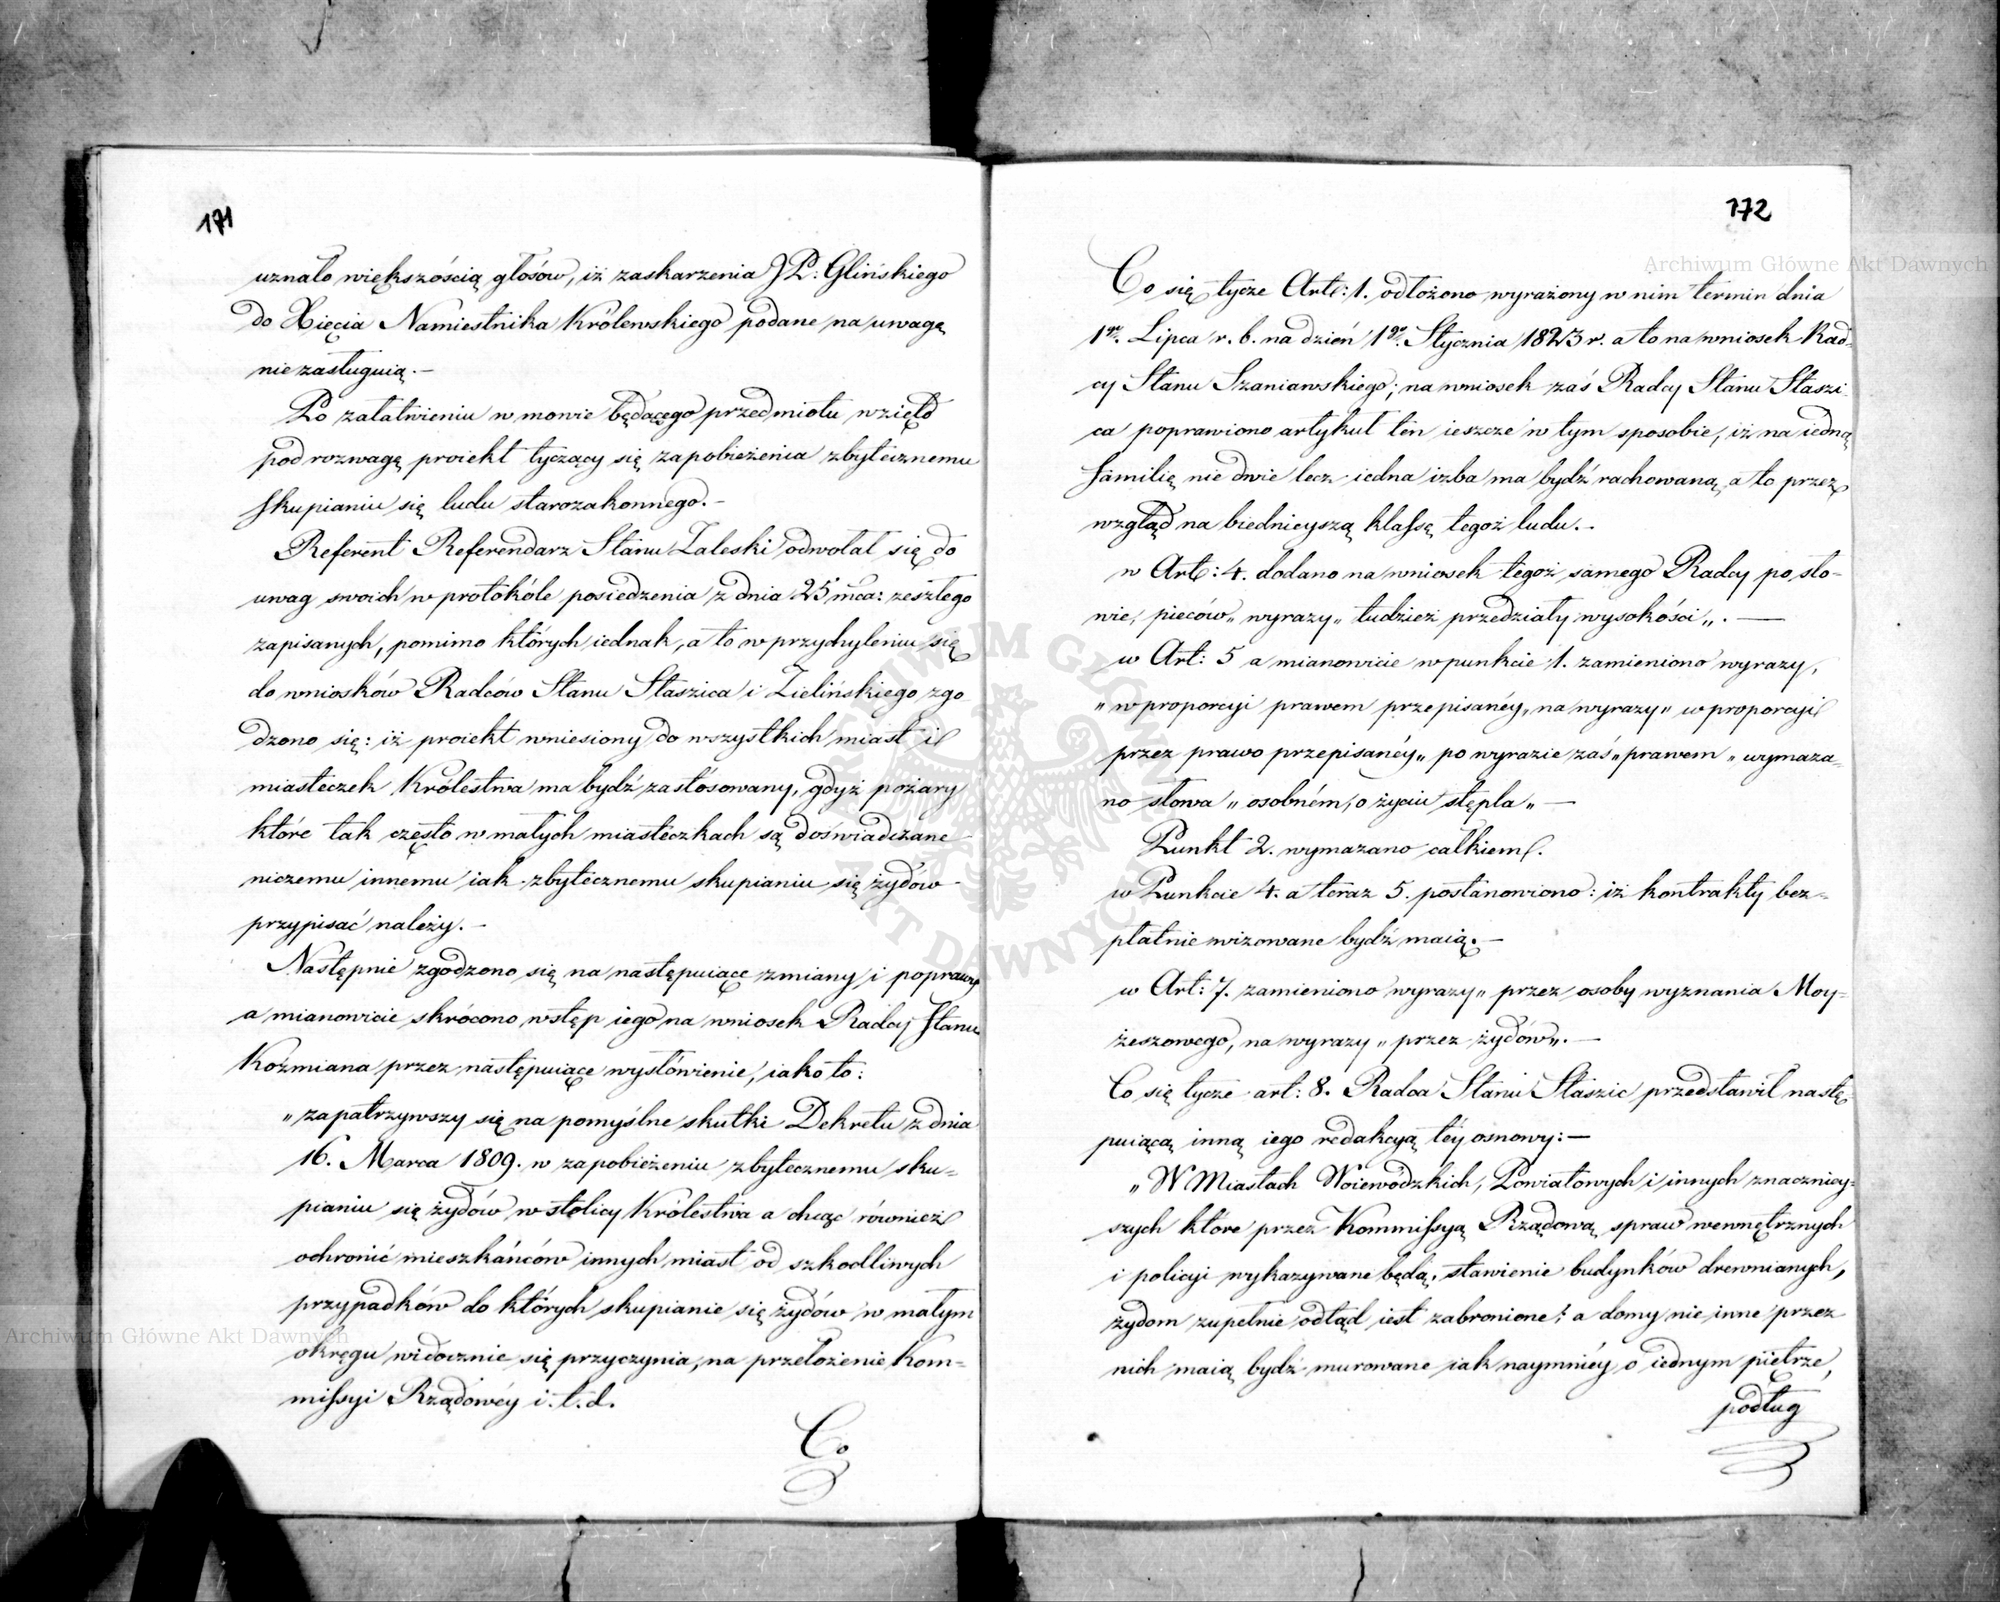 171
uznało większością głosów, iż zaskarzenia JP: Glińskiego
do Xięcia Namiestnika Królewskiego podane na uwagę
nie zasługuią.—
Po załatwieniu w mowie będącego przedmiotu wzięto
pod rozwagę proiekt tyczący się zapobieżenia zbytecznemu
skupianiu się ludu starozakonnego.—
Referent Referendarz Stanu Zaleski odwołał się do
uwag swoich w protokóle posiedzenia z dnia 25 mca: zeszłego
zapisanych, pomimo których iednak, a to w przychyleniu się
do wniosków Radców Stanu Staszica i Zielińskiego zgo
dzono się: iż proiekt wniesiony do wszystkich miast i
miasteczek Królestwa ma bydź zastósowany, gdyż pożary
które tak często w małych miasteczkach są doświadczane
niczemu innemu iak zbytecznemu skupianiu się żydów
przypisać należy.—
Następnie zgodzono się na następuiące zmiany i poprawy
a mianowicie skrócono wstęp iego na wniosek Radcy Stanu
Koźmiana przez następuiące wysłówienie, iako to:
„zapatrzywszy się na pomyślne skutki Dekretu z dnia
16. Marca 1809. w zapobieżeniu zbytecznemu sku=
pianiu się żydów w stolicy Królestwa a chcąc również
ochronić mieszkańców innych miast od szkodliwych
przypadków do których skupianie się żydów w małym
okręgu widocznie się przyczynia, na przełożenie Kom=
missyi Rządowéy i.t.d.
Co
172
Co się tycze Art: 1. odłożono wyrażony w nim termin dnia
1go. Lipca r. b. na dzień 1go. Stycznia 1823 r. a to na wniosek Rad=
cy Stanu Szaniawskiego; na wniosek zaś Radcy Stanu Staszi
ca poprawiono artykuł ten ieszcze w tym sposobie, iż na iedną
familię nie dwie lecz iedna izba ma bydź rachowaną, a to przez
wzgląd na biednieyszą klassę tegoż ludu.—
w Art: 4. dodano na wniosek tegoż samego Radcy po sło-
wie, pieców„ wyrazy „tudzież przedziały wysokości„.—
w Art: 5 a mianowicie w punkcie 1. zamieniono wyrazy,
„w proporcyi prawem przepisanéy„ na wyrazy „w proporcyi
przez prawo przepisanéy„ po wyrazie zaś „prawem„ wymaza=
no słowa „osobném, o życiu stępla„—
Punkt 2. wymazano całkiem.
w Punkcie 4. a teraz 5. postanowiono: iż kontrakty bez=
płatnie wizowane bydź maią.—
w Art: 7. zamieniono wyrazy „przez osoby wyznania Moy=
żeszowego, na wyrazy „przez żydów„.—
Co się tycze art: 8. Radca Stanu Staszic przedstawił nastę=
puiącą inną iego redakcyą téy osnowy:—
„W Miastach Woiewódzkich, Powiatowych i innych znacznicy=
szych które przez Kommissyą Rządową spraw wewnętrznych
i policyi wykazywane będą, stawienie budynków drewnianych,
żydom zupełnie odtąd iest zabronione; a domy nie inne przez
nich maią bydź murowane iak naymniéy o iednym piętrze,
podług
Archiwum Główne Akt Dawnych
Archiwum Główne Akt Dawnych
ARCHIWUM GŁÓWNE AKT DAWNYCH